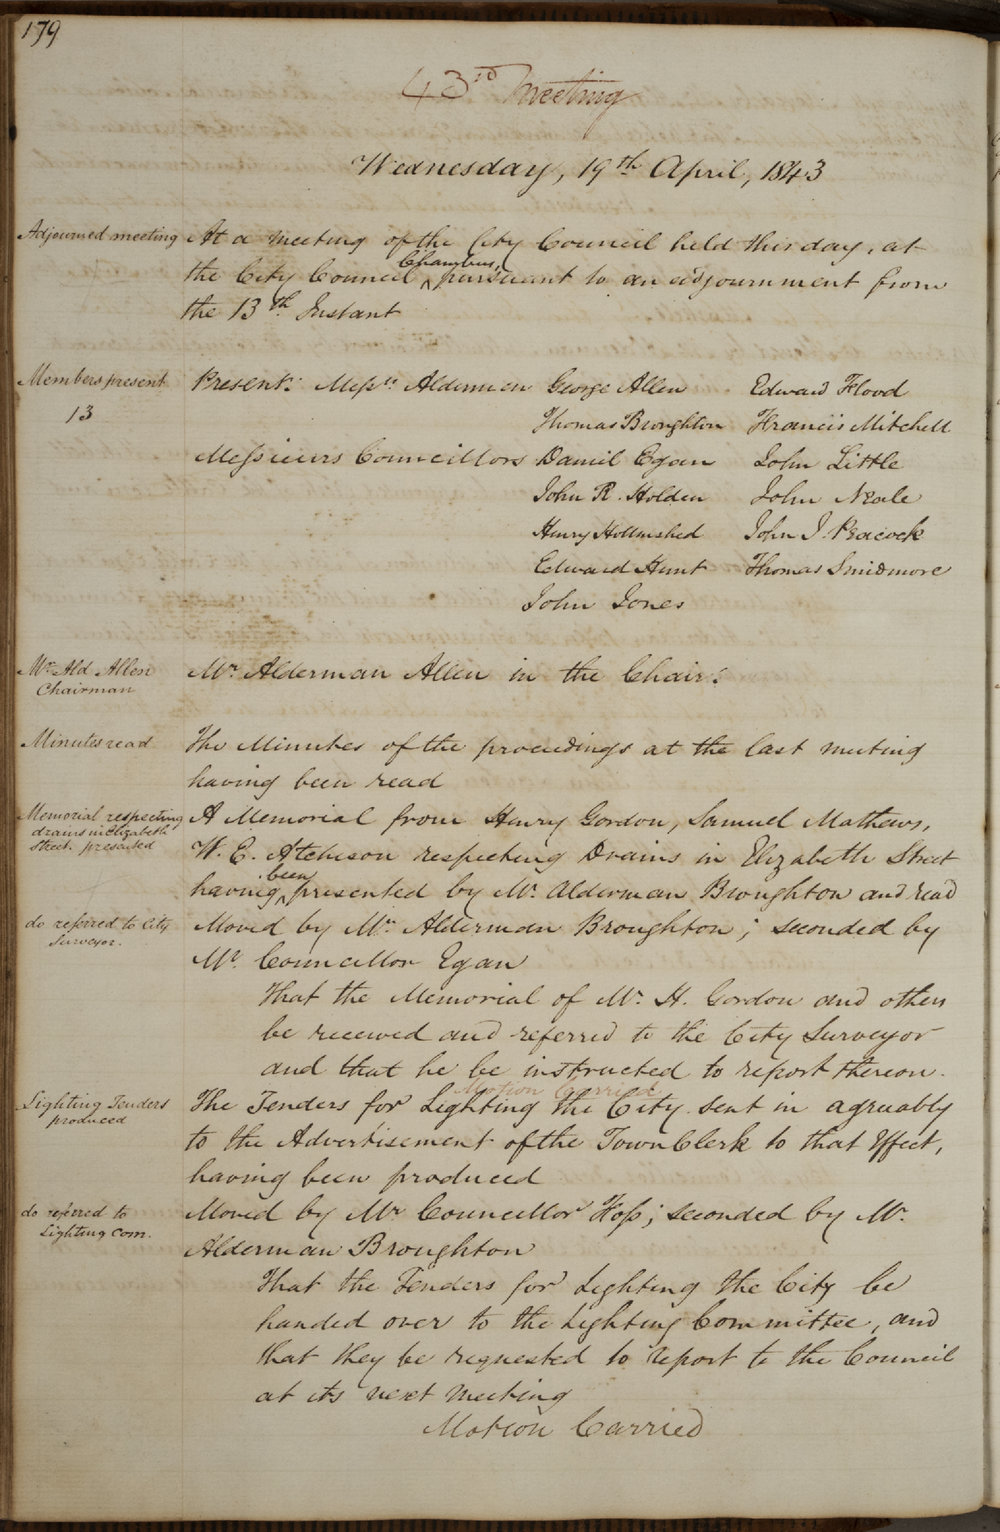 179
43rd Meeting
Wednesday, 19th April, 1843
Adjourned meeting
At a meeting of the City Council held this day, at
the City Council Chamber, pursuant to an adjournment from
the 13th Instant
Members present
13
Present: Messrs Aldermen George Allen Edward Flood
Thomas Broughton Francis Mitchell
Messieurs Councillors Daniel Egan John Little
John R. Holden John Neale
Henry Hollinshed John J. Peacock
Edward Hunt Thomas Smidmore
John Jones
Mr Ald Allen
Chairman
Mr Alderman Allen in the Chair:
Minutes read
The Minutes of the proceedings at the last meeting
having been read
Memorial respecting
drains in Elizabeth
Street. presented
A Memorial from Henry Gordon, Samuel Mathews,
W. C. Atcheson respecting Drains in Elizabeth Street
having been presented by Mr. Alderman Broughton and read
do referred to City
Surveyor.
Moved by Mr. Alderman Broughton; seconded by
Mr. Councillor Egan
That the Memorial of Mr. H. Gordon and others
be received and referred to the City Surveyor
and that he be instructed to report thereon.
Motion Carried
Lighting Tenders
produced
The Tenders for Lighting the City sent in agreeably
to the Advertisement of the Town Clerk to that Effect,
having been produced
do referred to
Lighting Com.
Moved by Mr Councillor Hoss; seconded by Mr.
Alderman Broughton
That the Tenders for Lighting the City be
handed over to the Lighting Committee, and
that they be requested to report to the Council
at its next Meeting
Motion Carried